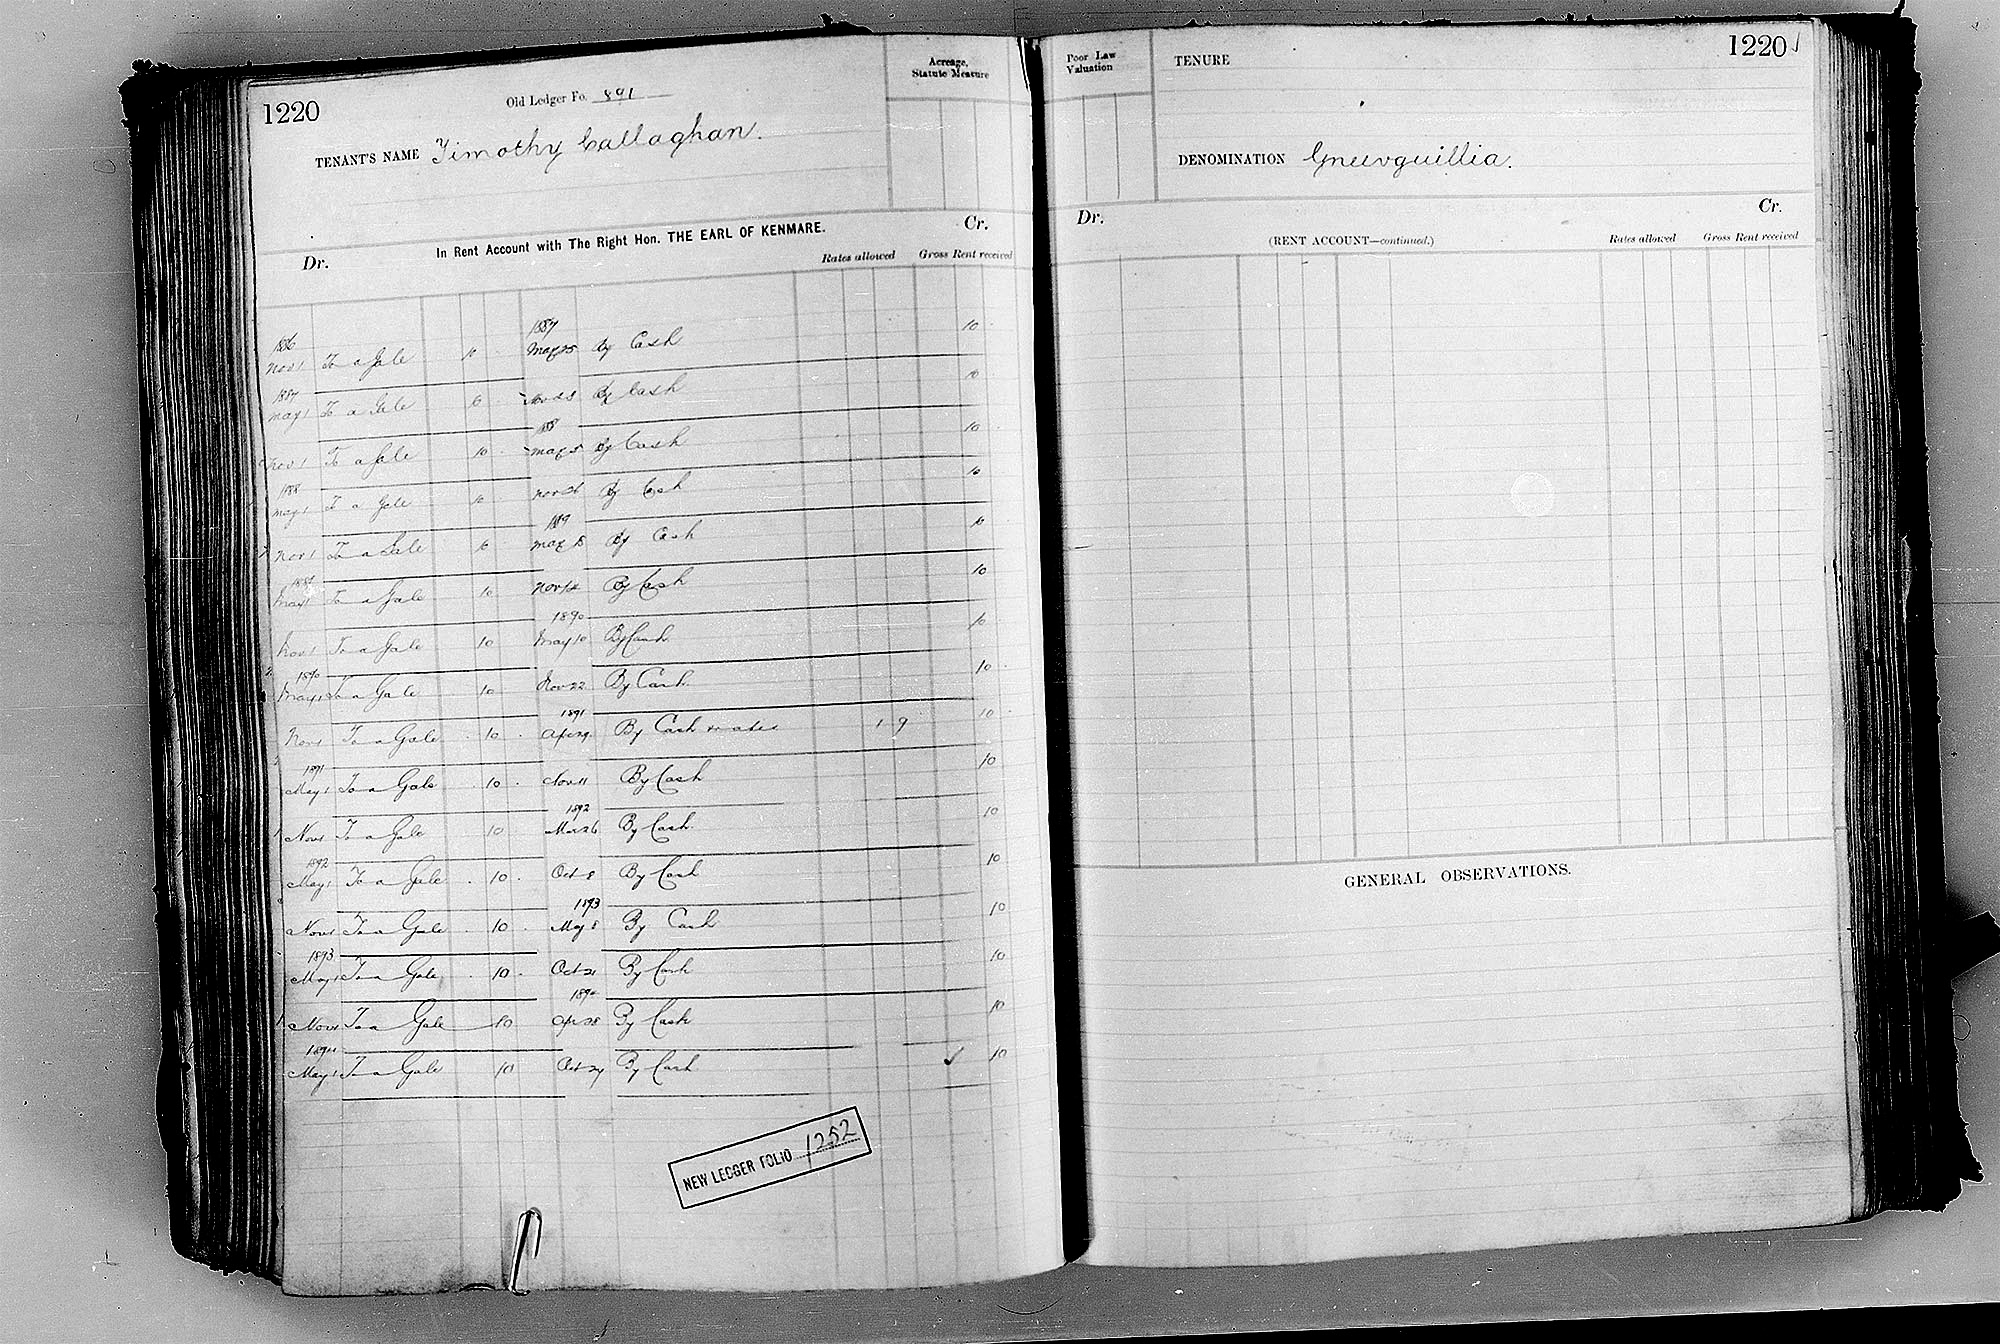 1220
Old Ledger Fo. 891
Acreage, Statute Measure
TENANT'S NAME Timothy Callaghan.
In Rent Account with The Right Hon. THE EARL OF KENMARE.
Dr. Cr.
Rates allowed Gross Rent received
1886 1887
Nov 1 To a Gale 10 May 25 By Cash 10
1887
May 1 To a Gale 10 By Cash 10
188
Nov 1 To a Gale 10 May By Cash 10
1888
May 1 To a Gale 10 Nov 26 By Cash 10
1889
Nov 1 To a Gale 10 May 18 By Cash 10
1889
May 1 To a Gale 10 Nov By Cash 10
1890
Nov 1 To a Gale 10 May 10 By Cash 10
1890
May 1 To a Gale 10 Nov 22 By Cash 10
1891
Nov 1 To a Gale 10 Apl 29 By Cash & rates 1 9 10
1891
May 1 To a Gale 10 Nov 11 By Cash 10
1892
Nov 1 To a Gale 10 Mar 26 By Cash 10
1892
May 1 To a Gale 10 Oct 8 By Cash 10
1893
Nov 1 To a Gale 10 May 8 By Cash 10
1893
May 1 To a Gale 10 Oct 21 By Cash 10
1894
Nov 1 To a Gale 10 Apr 28 By Cash 10
1894
May 1 To a Gale 10 Oct 24 By Cash ✓ 10
NEW LEDGER FOLIO 1252
Poor Law Valuation
TENURE
1220
DENOMINATION Gneevguillia.
Dr. Cr.
(RENT ACCOUNT—continued.)
Rates allowed Gross Rent received
GENERAL OBSERVATIONS.